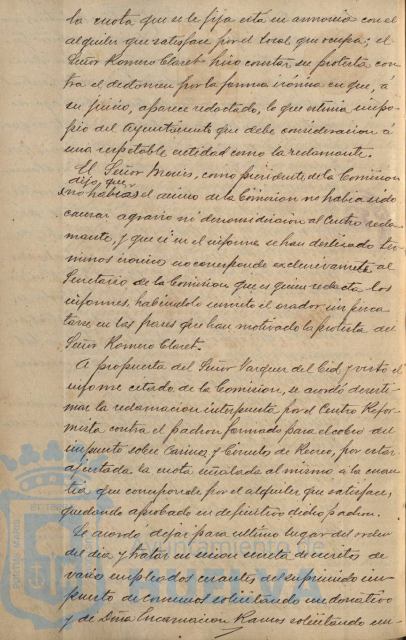 la cuota que se le fija está en armonía con el
alquiler que satisface por el local que ocupa; el
Señor Romero Claret hizo constar su protesta con-
tra el dictamen por la forma irónica en que, á
su juicio, aparece redactado, lo que estima impro-
pio del Ayuntamiento que debe consideracion á
una respetable entidad como la reclamante.
El Señor como presidente de la Comision
dijo que
no había el ánimo de la Comision no había sido
causar agravio ni desconsideracion al Centro recla-
mante, y que si en el informe se han deslizado tér-
minos irónicos corresponde exclusivamente al
Secretario de la Comision que es quien redacta los
informes, habiéndolo suscrito el orador sin fijar
tarse en las frases que han motivado la protesta del
Señor Romero Claret.
A propuesta del Señor Vazquez del Cid y visto el
informe citado de la Comision, se acordó desesti-
mar la reclamacion interpuesta por el Centro Refor-
mista contra el padron formado para el cobro del
impuesto sobre Casinos y Círculos de Recreo, por estar
ajustada la cuota señalada al mismo a la cuan-
tía que corresponde por el alquiler que satisface,
quedando aprobado en definitivo dicho padron.
Se acordó dejar para último lugar del orden
del dia y tratar en sesion secreta de escritos de
varios empleados cesantes del suprimido im-
puesto de consumos solicitando un donativo
y de Dña Encarnacion Ramos solicitando un